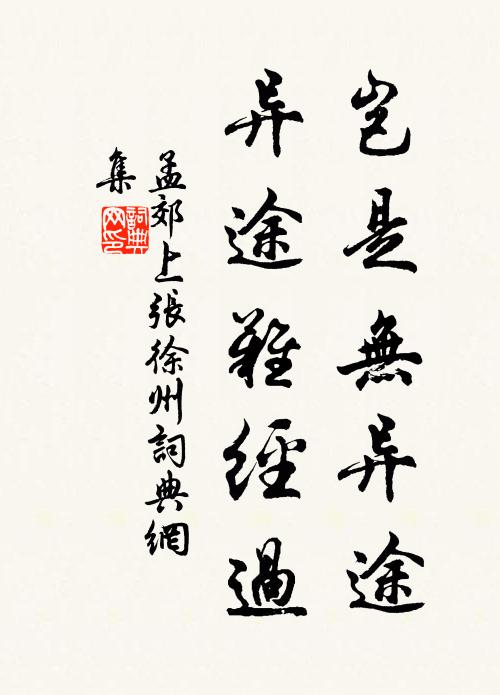 豈是無异途
异途難經過
孟郊上張徐州詞典網
集
詞典网印